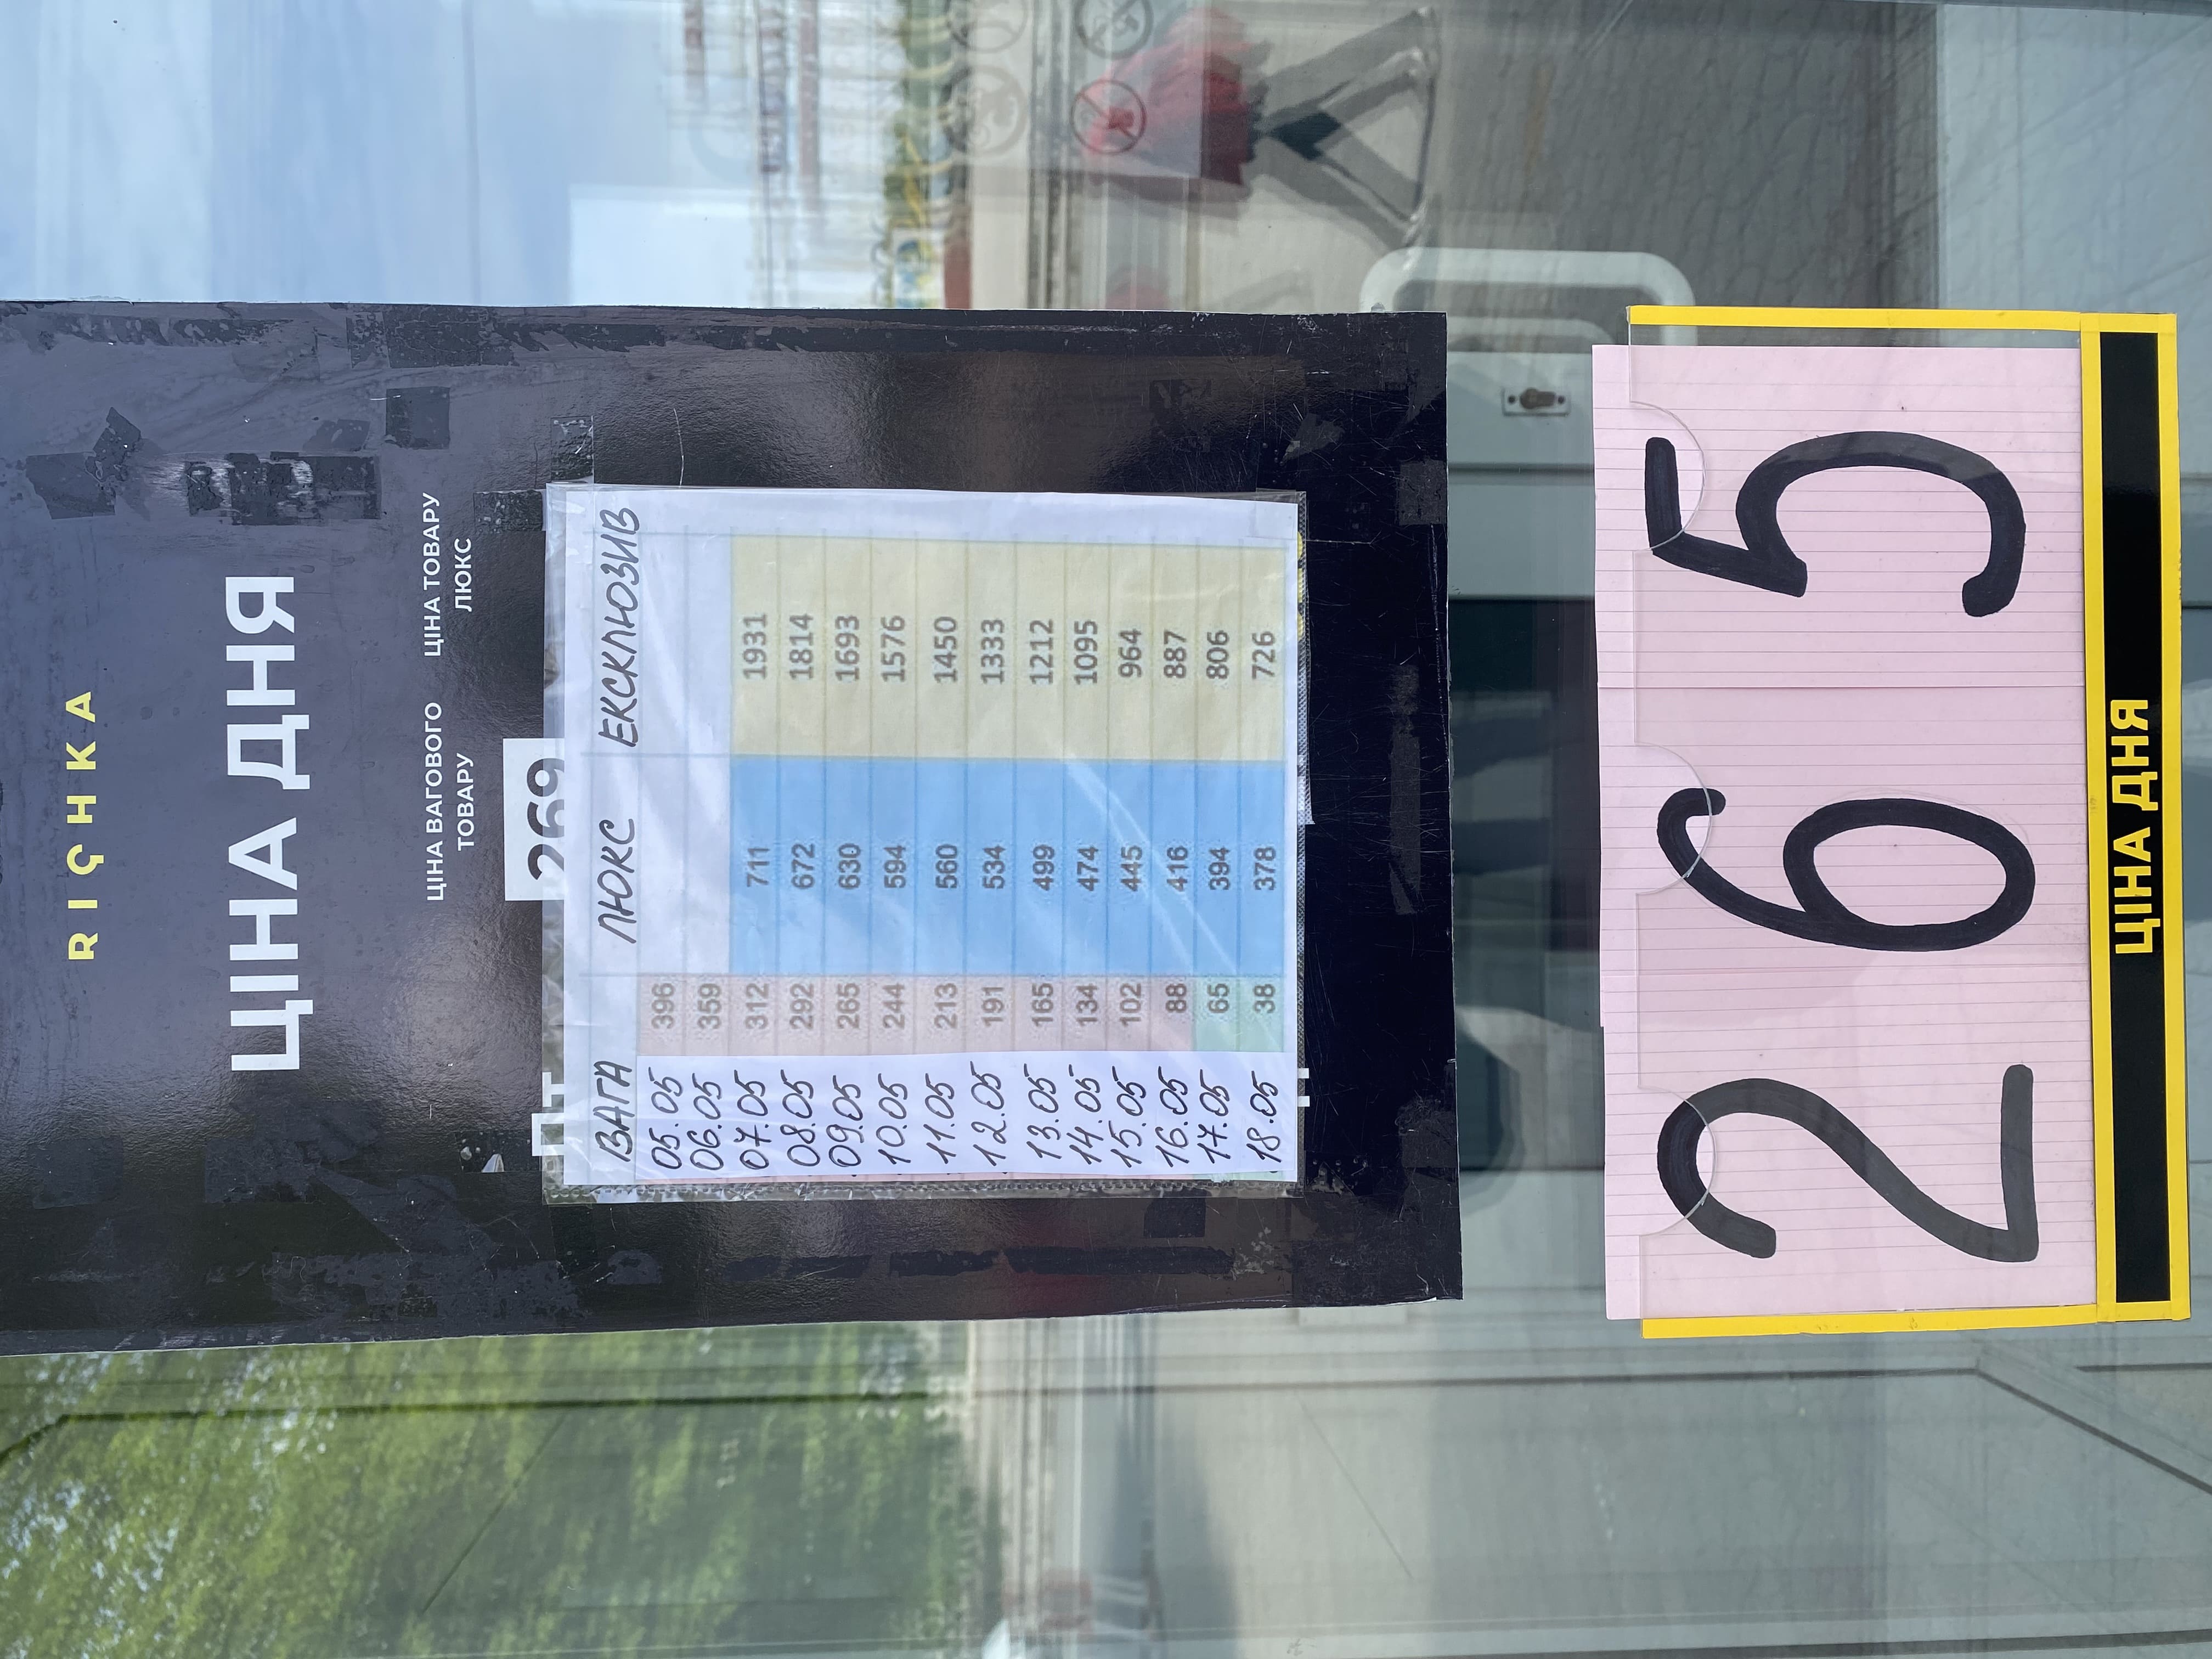 RICHKA
ЦІНА ДНЯ
ЦІНА ВАГОВОГО ТОВАРУ
ЦІНА ТОВАРУ ЛЮКС
ПТ 269
ВАГА ЛЮКС ЕКСКЛЮЗИВ
05.05 396
06.05 359
07.05 312 711 1931
08.05 292 672 1814
09.05 265 630 1693
10.05 244 594 1576
11.05 213 560 1450
12.05 191 534 1333
13.05 165 499 1212
14.05 134 474 1095
15.05 102 445 964
16.05 88 416 887
17.05 65 394 806
18.05 38 378 726
265
ЦІНА ДНЯ